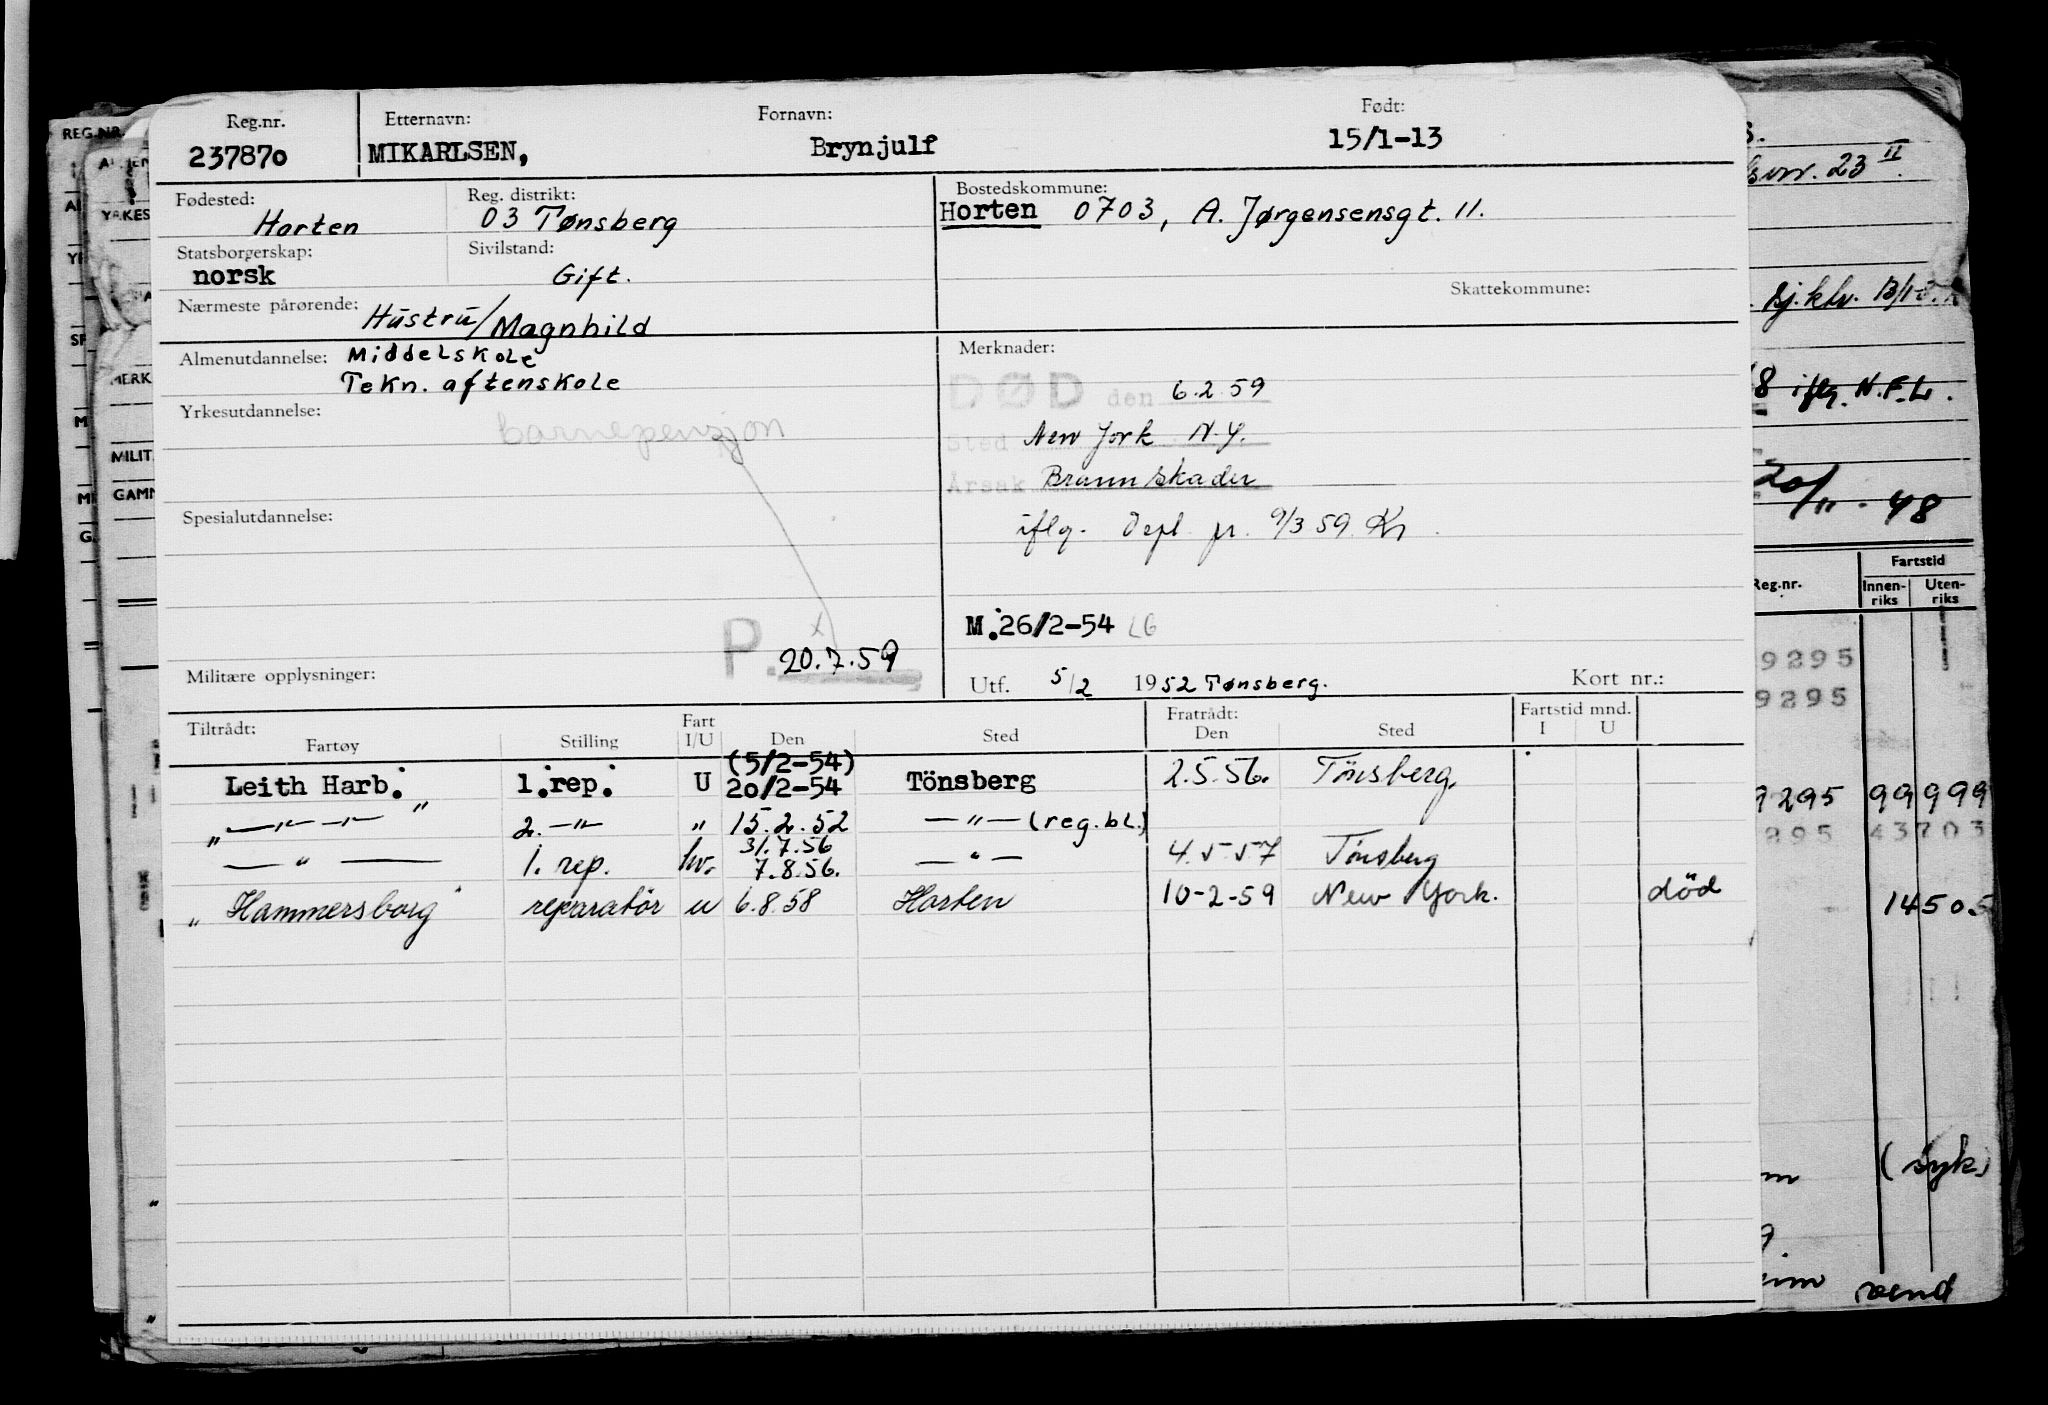 Reg.nr. Etternavn: Fornavn: Født:
237870 MIKARLSEN, Brynjulf 15/1-13
Fødested: Horten
Reg. distrikt: 03 Tønsberg
Bostedskommune: Horten 0703, A. Jørgensensgt. 11.
Statsborgerskap: norsk
Sivilstand: Gift.
Skattekommune:
Nærmeste pårørende: Hustru/Magnhild
Almenutdannelse: Middelskole
Tekn. aftenskole
Merknader:
DØD den 6.2.59
Sted New York N.Y.
Årsak Brannskader
iflg. Depl. pr. 9/3 59. Kr.
Yrkesutdannelse:
barnepensjon
Spesialutdannelse:
P. 20.7.59
M.26/2-54 LG
Militære opplysninger:
Utf. 5/2 1952 Tønsberg. Kort nr.:
Tiltrådt: Fart Fratrådt: Fartstid mnd.
Fartøy Stilling I/U Den Sted Den Sted I U
Leith Harb. 1.rep. U (5/2-54) 20/2-54 Tönsberg 2.5.56. Tönsberg.
„ —"— —"— " 2. —"— " 15.2.52 —"— (reg.bl.)
— " — 1. rep. hv. 31.7.56 7.8.56. —"— 4.5.57 Tönsberg
„Hammersborg" reparatör u 6.8.58 Horten 10-2-59 New York. död
REG.NR.
YRKES
MERK
MILIT.
GAMM
23 II.
iflg. N.F.L.
20/11.48
Reg.nr. Fartstid
Innen-riks Uten-riks
9295
9295
9295 99999
295 43703
14505
(syk)
send